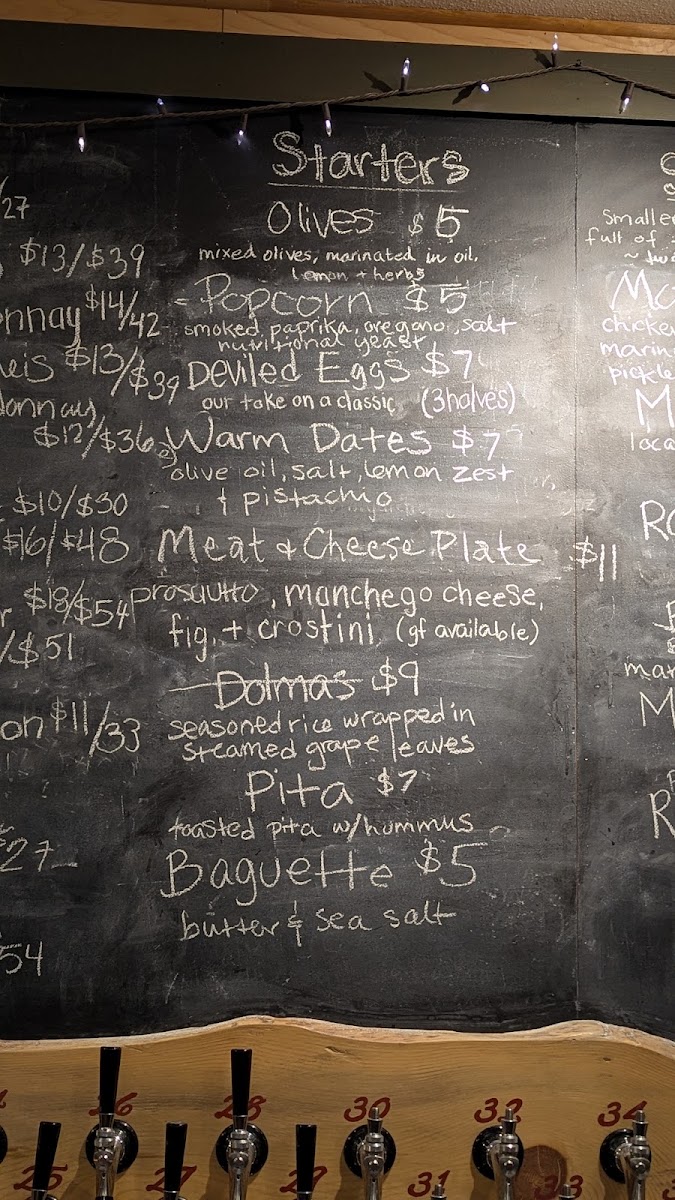 /27
$13/$39
nnay $14/42
eis $13/$39
donnay
$12/$36
$10/$30
$16/$48
r $18/$54
/$51
on $11/33
$27
54
Starters
Olives $5
mixed olives, marinated in oil,
lemon + herbs
Popcorn $5
smoked paprika, oregano, salt
nutritional yeast
Deviled Eggs $7
our take on a classic (3 halves)
Warm Dates $7
olive oil, salt, lemon zest
& pistachio
Meat & Cheese Plate $11
prosquitto, manchego cheese,
fig, + crostini (gf available)
Dolmas $9
seasoned rice wrapped in
steamed grape leaves
Pita $7
toasted pita w/hummus
Baguette $5
butter & sea salt
Smalle
full of
Mo
chicke
marin
pickle
M
loca
Ro
mar
M
R
26 28 30 32 34
25 27 29 31 33